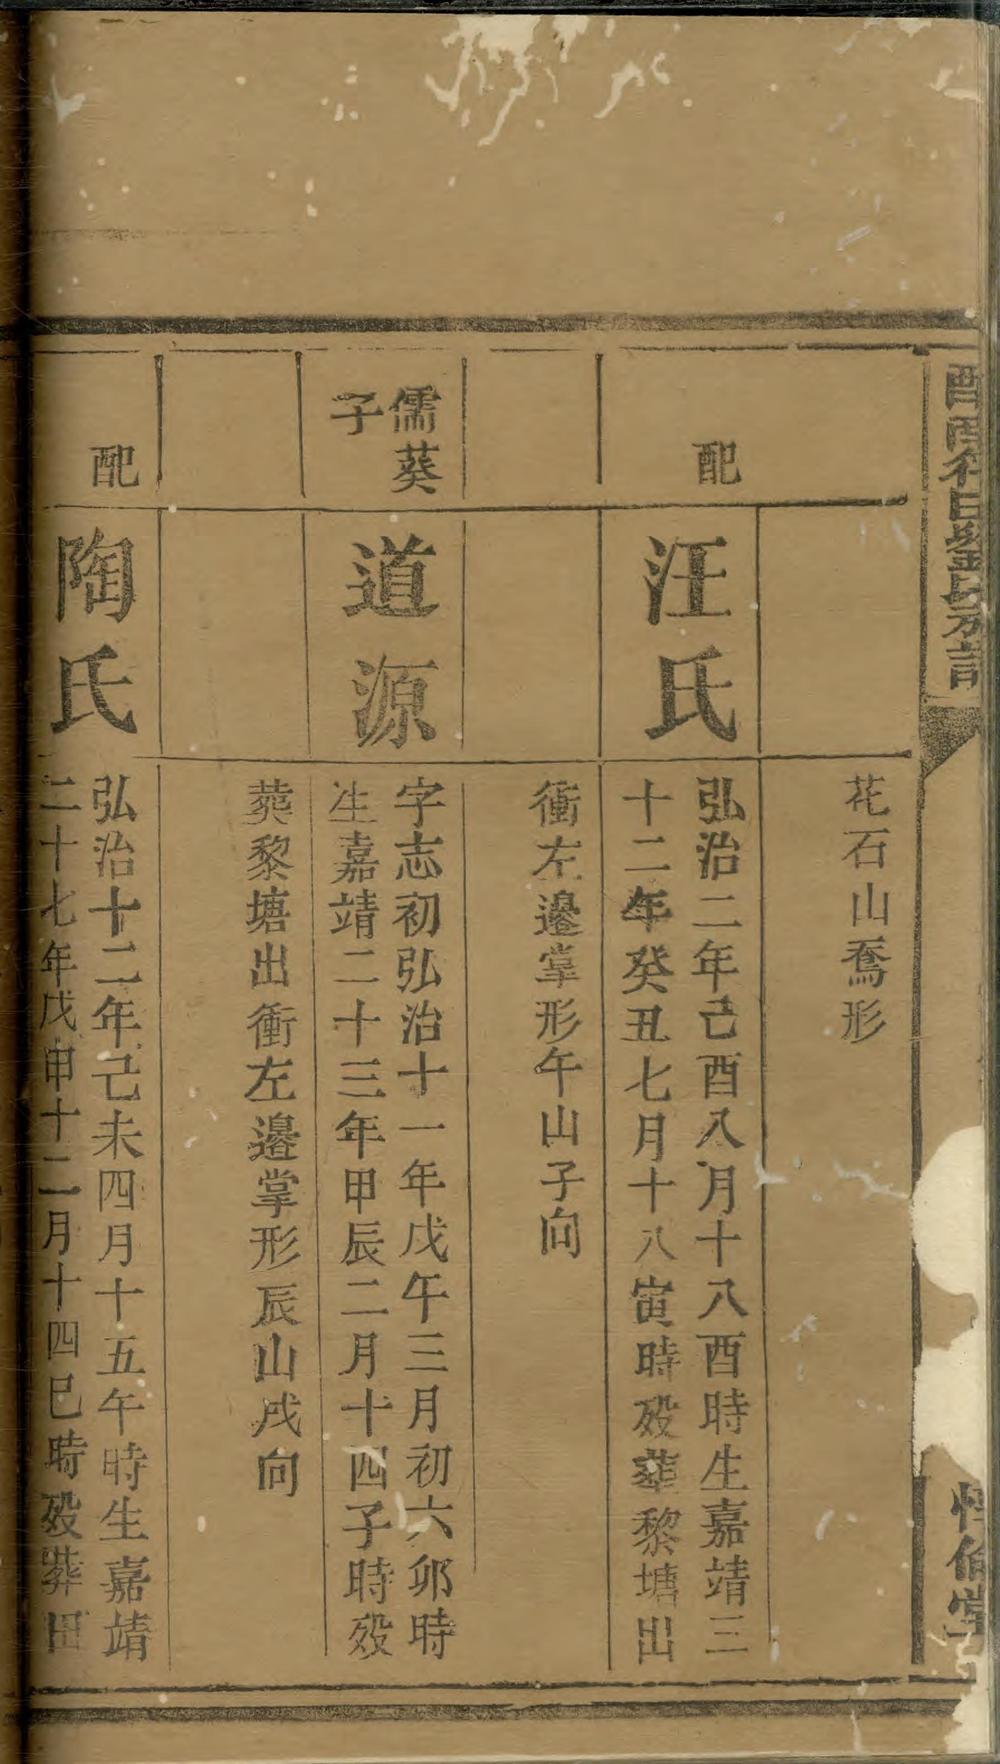 花石山鵞形
配
汪氏
弘治二年己酉八月十八酉時生嘉靖三
十二年癸丑七月十八寅時殁葬黎塘出
衝左邊掌形午山子向
儒葵
子
道源
字志初弘治十一年戊午三月初六卯時
生嘉靖二十三年甲辰二月十四子時殁
葬黎塘出衝左邊掌形辰山戌向
配
陶氏
弘治十二年己未四月十五午時生嘉靖
二十七年戊申十二月十四巳時殁葬田